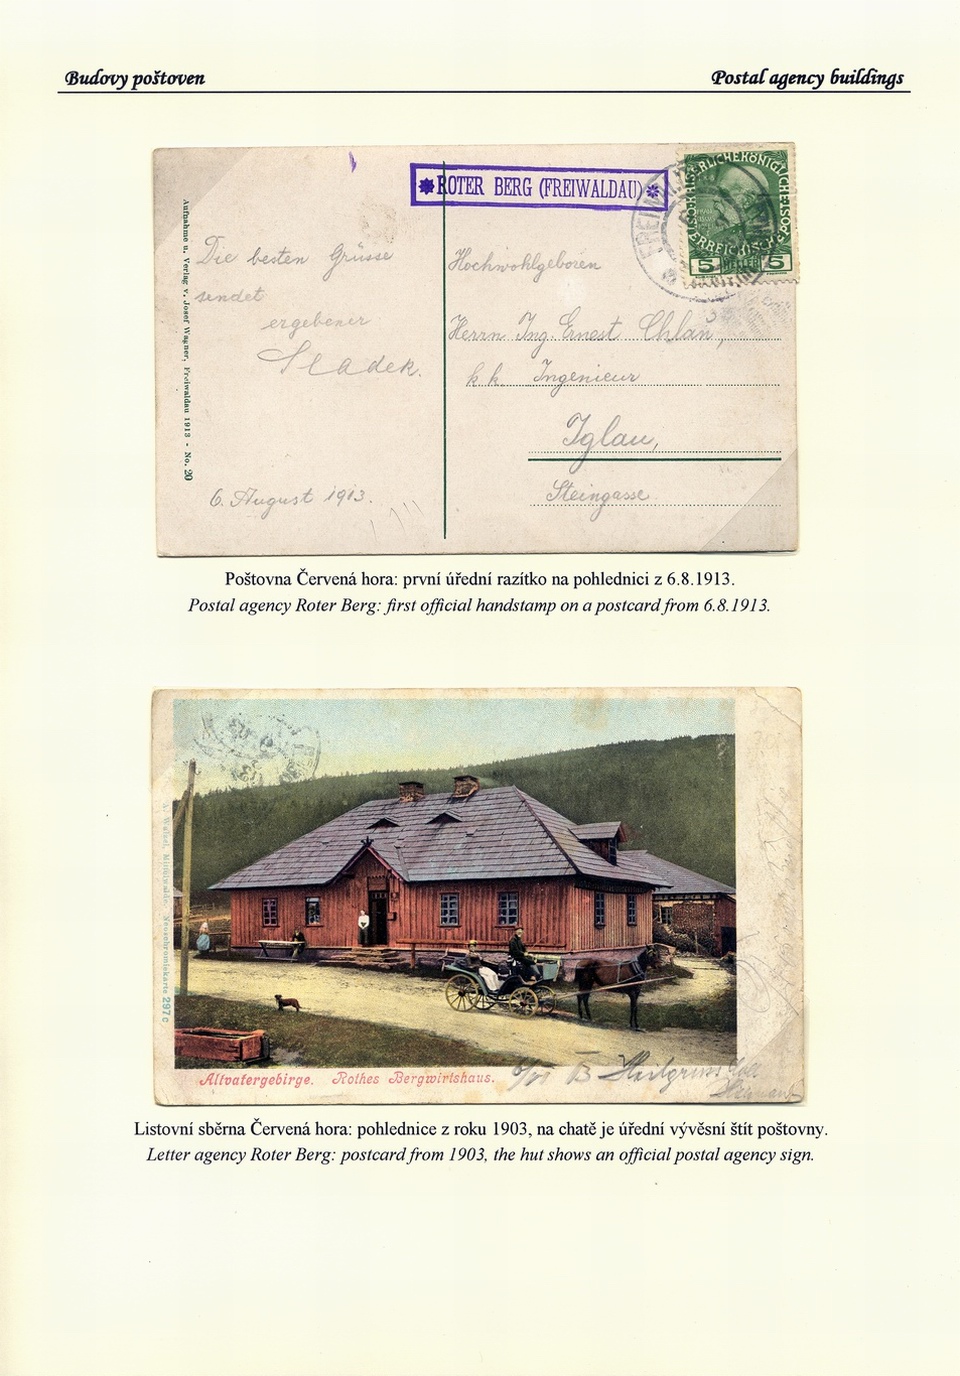 Budovy poštoven
Postal agency buildings
ROTER BERG (FREIWALDAU)
5 HELLER 5
Aufnahme u. Verlag v. Josef Wagner, Freiwaldau 1913 - No. 20
Die besten Grüsse
sendet
ergebener
Sladek.
6. August 1913.
Hochwohlgeboren
Herrn Ing. Ernest Chlan,
k. k. Ingenieur
Iglau,
Steingasse
Poštovna Červená hora: první úřední razítko na pohlednici z 6.8.1913.
Postal agency Roter Berg: first official handstamp on a postcard from 6.8.1913.
Altvatergebirge. Rothes Bergwirtshaus.
297c
Listovní sběrna Červená hora: pohlednice z roku 1903, na chatě je úřední vývěsní štít poštovny.
Letter agency Roter Berg: postcard from 1903, the hut shows an official postal agency sign.